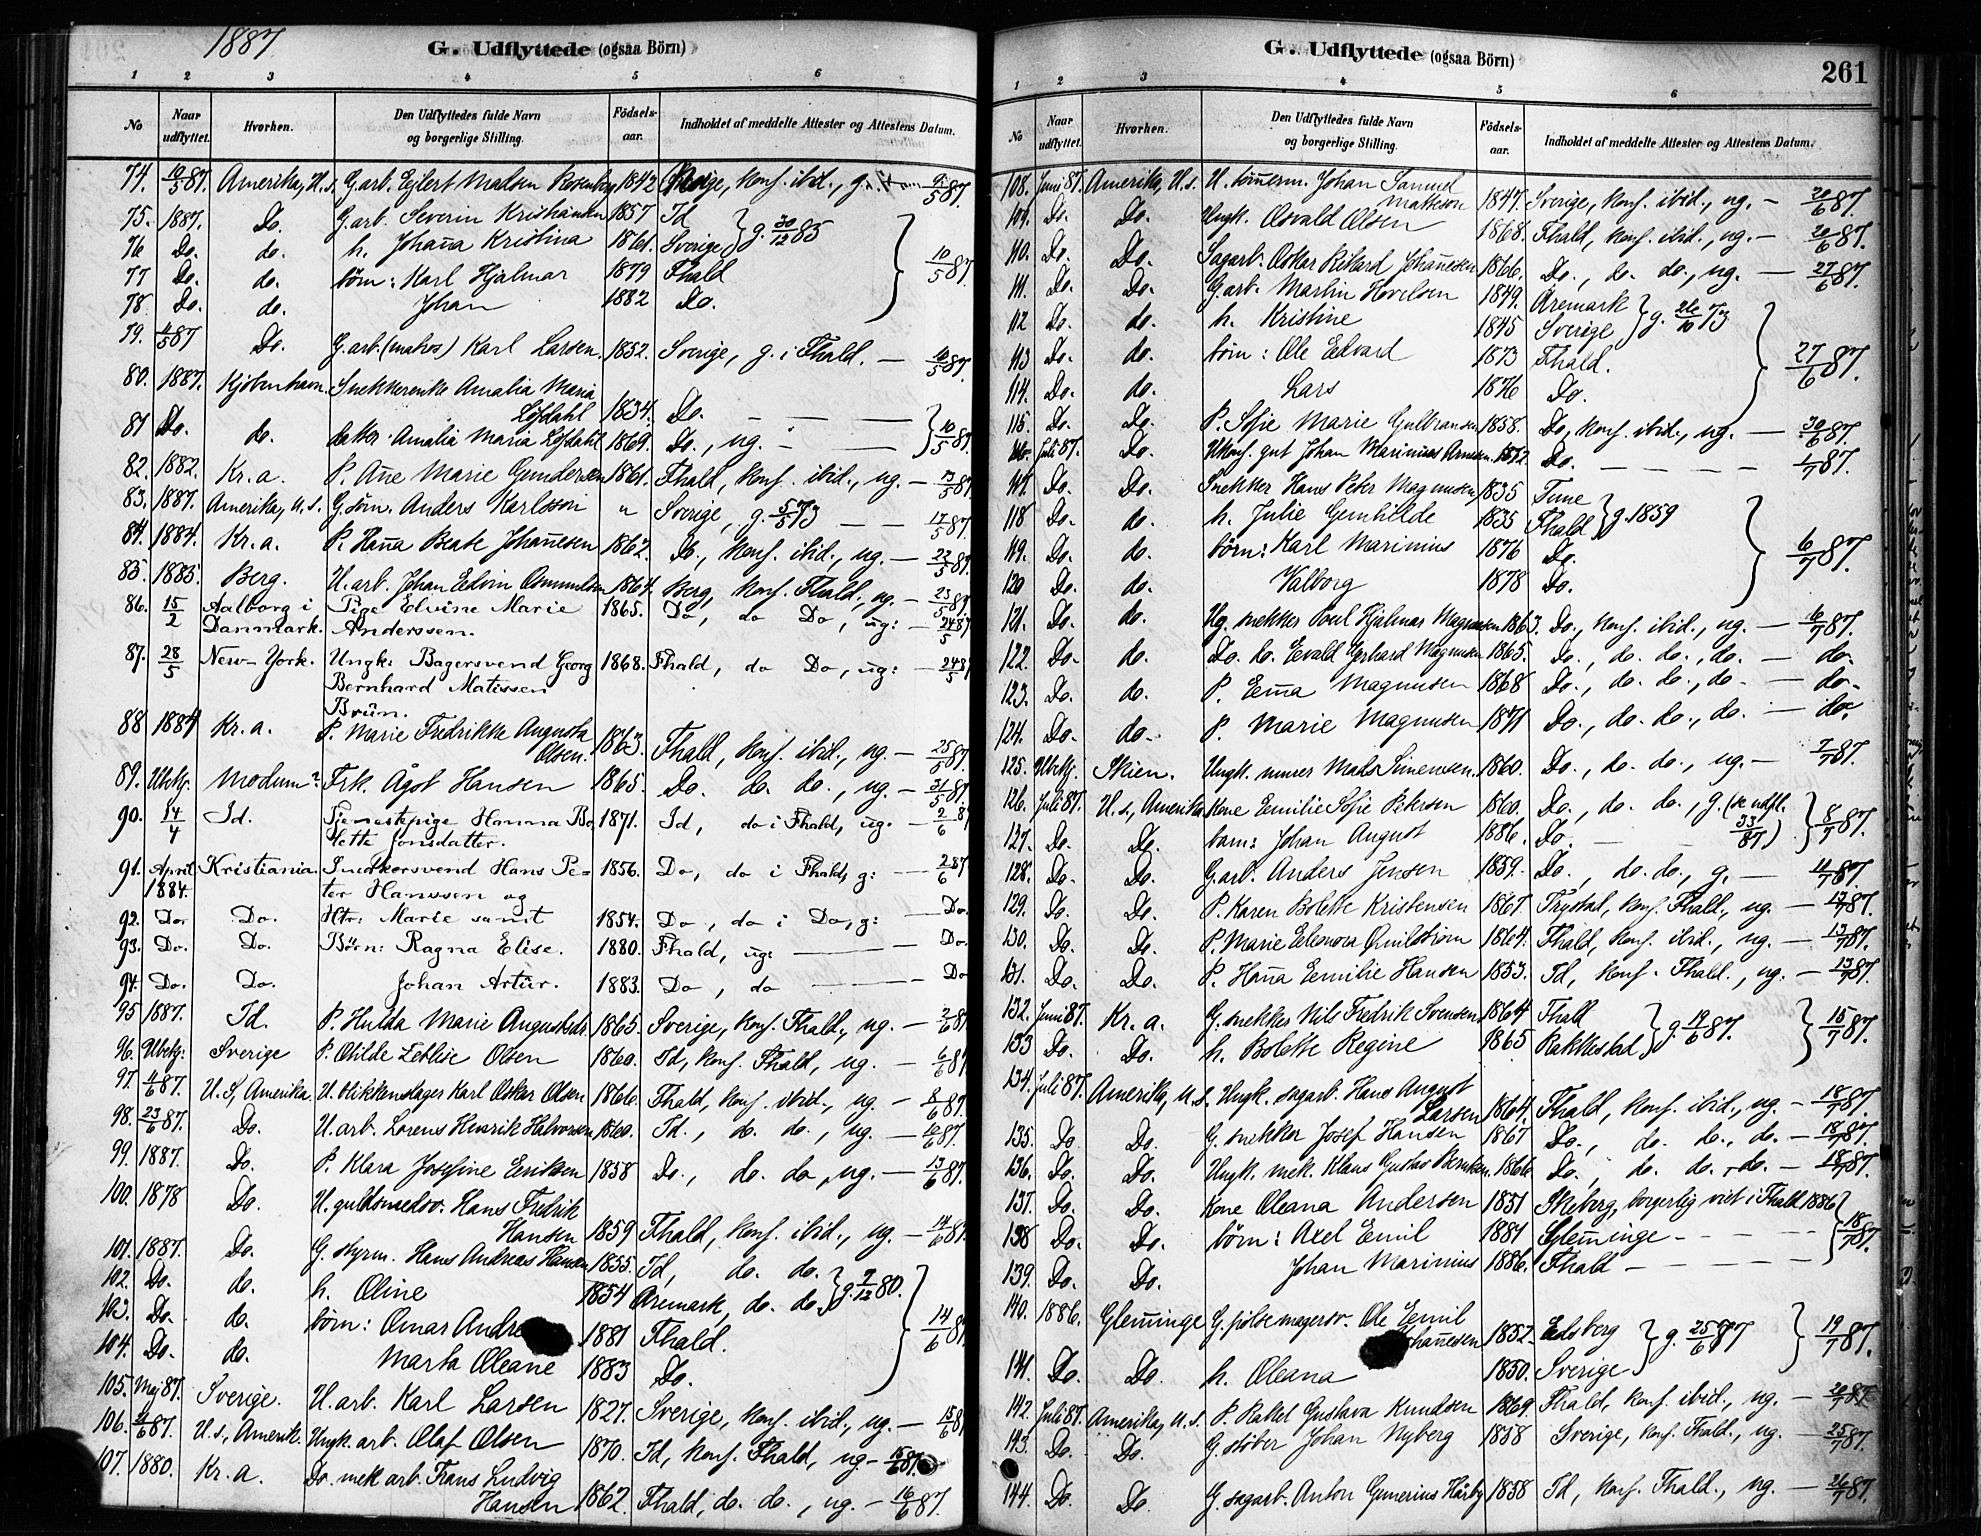 1887
G. Udflyttede (ogsaa Börn)
1 2 3 4 5 6
No Naar udflyttet. Hvorhen. Den Udflyttedes fulde Navn og borgerlige Stilling. Födsels-aar. Indholdet af meddelte Attester og Attestens Datum.
74. 10/5 87. Amerika, U.s. G.arb. Ejlert Madsen 1842 konf. ibid., g. 9/5 87.
75. 1887. Do. G.arb. Severin Kristiansen 1857 Id } g. 30/12 85
76 Do. do. h. Johaña Kristina 1861. Sverige } 10/5 87.
77 Do. do. børn: Karl Hjalmar 1879 Fhald
78. Do. do. Johan 1882 Do.
79. 4/5 87 Do. G.arb. (matros) Karl Larsen. 1852. Sverige, g. i Fhald. — 10/5 87.
80. 1887. Kjøbenhavn. Snekkerenke Amalia Maria
Löfdahl 1834. Do. — — —
81 Do. do. datter Amalia Maria Löfdahl 1869. Do., ug. — — } 10/5 87.
82. 1882. Kr.a. P. Añe Marie Gundersen 1861. Fhald, konf. ibid., ug. — 13/5 87.
83. 1887. Amerika, U.s. G.tøm. Anders Karlsson " Sverige, g. 5/5 73 — — 17/5 87.
84. 1884. Kr.a. P. Haña Beate Johañesen 1862. Do., konf. ibid., ug. — 22/5 87.
85. 1885. Berg. U.arb. Johan Edvin Osmundsen 1864. Berg, konf. Fhald., ug. — 23/5 87.
86. 15/2 Aalborg i Pige Elvine Marie 1865. Do, do Do, ug: — 24/5 87
Danmark. Anderssen.
87. 28/5 New-York. Ungk: Bagersvend Georg 1868. Fhald, do Do, ug: — 24/5 87
Bernhard Matissen
Brün.
88 1884 Kr.a. P. Marie Fredrikke Augusta
Olsen. 1863. Fhald, konf. ibid., ug. — 25/5 87.
89. Ubek. Modum? Frk. Ågot Hansen 1865. Do. do. do., ug. — 31/5 87
90. 14/4 Id. Tjenestepige Hanna Bo- 1871. Id, do i Fhald, ug. — 2/6 87
lette Jonsdatter.
91. April Kristiania. Snedkersvend Hans Pe- 1856. Do, do i Fhald, g: — 2/6 87
1884. ter Hanssen og
92. Do. Do. Htr: Marie samt 1854. Do, do i Do, g: — Do.
93. Do. Do. Börn: Ragna Elise. 1880. Fhald, ug: — Do.
94. Do. Do. Johan Artur. 1883. Do, do — Do
95 1887. Id. P. Hulda Marie Augustsdr. 1865. Sverige, konf. Fhald., ug. — 2/6 87
96. Ubek: Sverige P. Otilde Olsen 1860. Id, konf. Fhald, ug. — 6/6 87
97. 4/6 87. U.S, Amerika U. Karl Oskar Olsen 1866. Fhald, konf. ibid., ug. — 8/6 87.
98. 23/6 87. Do. U.arb. Lorens Henrik Halvorsen 1860. Id., do. do., ug. — 10/6 87.
99. 1887. Do. P. Klara Josefine Eriksen 1858 Do., do. do, ug. — 13/6 87.
100. 1878 Do. U. guldsmedsv. Hans Fredrik
Hansen 1859 Fhald, konf. ibid., ug. — 14/6 87.
101. 1887. Do. G. styrm. Hans Andreas Hansen 1855. Id, do. do. } g. 9/12 80.
102. Do. do. h. Oline 1854 Aremark, do. do. } 14/6 87.
103. Do. do. børn: Omar Andre 1881 Fhald.
104. Do. do. Marta Oleane 1883 Do.
105. Maj 87. Sverige. U.arb. Karl Larsen 1827. Sverige, konf. ibid., ug. — 15/6 87
106. 21/6 87. U.s., Amerik. Ungk. arb. Olaf Olsen 1870. Id, konf. Fhald, ug. — 15/6 87.
107. 1880. Kr.a. Do. mek arb. Frans Ludvig
Hansen 1862. Fhald, do. do., ug. — 16/6 87.
G. Udflyttede (ogsaa Börn) 261
1 2 3 4 5 6
No Naar udflyttet. Hvorhen. Den Udflyttedes fulde Navn og borgerlige Stilling. Födsels-aar. Indholdet af meddelte Attester og Attestens Datum.
108. Juni 87. Amerika, U.s. U. tømerm. Johan Samuel
Matteson 1847. Sverige, konf. ibid., ug. — 20/6 87.
109. Do. Do. Ungk. Osvald Olsen 1868. Fhald, konf. ibid., ug. — 20/6 87.
110. Do. Do. Sagarb. Oskar Rikard Johañesen 1866. Do., do. do., ug. — 27/6 87.
111. Do. Do. G.arb. Martin Hovelsen 1849. Aremark } g. 26/10 73
112 Do. do. h. Kristine 1845 Sverige
113 Do. do. børn: Ole Edvard 1873 Fhald. } 27/6 87.
114. Do. do. Lars 1876 Do.
115. Do. Do. P. Sofie Marie Gulbransen 1858. Do, konf. ibid., ug. — 30/6 87.
116. Juli 87. Do. Ukonf. gut Johan Marinius Do. — — — 1/7 87.
117. Do. Do. Snekker Hans Peter Magnusen 1835 Tune } g. 1859
118 Do. do. h. Julie Gunhilde 1835 Fhald
119. Do. do. børn: Karl Marinius 1876 Do. } 6/7 87.
120 Do. do. Valborg 1878 Do.
121. Do. do. Ug. snekker Poul Hjalmar Magnusen 1863. Do., konf. ibid., ug. — 6/7 87.
122. Do. do. Do. do. Evald Gerhard Magnusen 1865. Do., do. do., do. — do.
123. Do. do. P. Eṁa Magnusen 1868 Do., do. do., do. — do.
124. Do. do. P. Marie Magnusen 1871 Do., do. do., do. — do.
125. Ubek. Skien. Ungk. murer Mads Simensen. 1860. Do., do. do., ug. — 7/7 87.
126. Juli 87. U.s., Amerika Kone Emilie Sofie Petersen 1860. Do., do. do., g. (se udfl.
127. Do. Do. barn: Johan August 1886. Do. — — 33/87) } 8/7 87.
128. Do. Do. G.arb. Anders Jensen 1859. Do., do. do., g. — 11/7 87.
129. Do. Do. P. Karen Bolette Kristensen 1867. Trysil, konf. Fhald., ug. — 12/7 87.
130. Do. Do. P. Marie Eleonora Qvilstrøm 1864. Fhald, konf. ibid., ug. — 13/7 87.
131. Do. Do. P. Haña Emilie Hansen 1853. Id, konf. Fhald., ug. — 13/7 87.
132. Juni 87. Kr.a. G. snekker Nils Fredrik Svensen 1864 Fhald } g. 19/6 87. } 15/7 87.
133 Do. Do. h. Bolette Regine 1865 Rakkestad
134. Juli 87. Amerika, U.s. Ungk. sagarb. Hans August
Larsen 1864. Fhald, konf. ibid., ug. — 18/7 87.
135. Do. Do. G. snekker Josef Hansen 1867 Do., do. do., do. — 18/7 87.
136. Do. Do. Ungk. mek. Klaus Gustav Berntsen. 1866. Do., do. do., do. — 18/7 87.
137. Do. Do. Kone Oleana Andersen 1851 Skeberg, borgerlig viet i Fhald 1886
138 Do. Do. børn: Axel Emil 1881 Gleṁinge — — — — } 18/7 87.
139. Do. Do. Johan Marinius 1886. Fhald — — — —
140. 1886. Gleṁinge G. pølsemagersv. Ole Emil
Johañesen 1852. Edsberg } g. 25/6 77 } 19/7 87.
141. Do. Do. h. Oleana 1850. Sverige
142. Juli 87. Amerika, U.s. P. Rakel Gustava Knudsen 1869. Fhald, konf. ibid., ug. — 20/7 87
143. Do. Do. G. støber Johan Nyberg 1858 Sverige, konf. Fhald., ug. — 25/7 87.
144. Do. Do. G. sagarb. Anton Gunerius Hårby 1858 Id, konf. Fhald., ug. — 26/7 87.